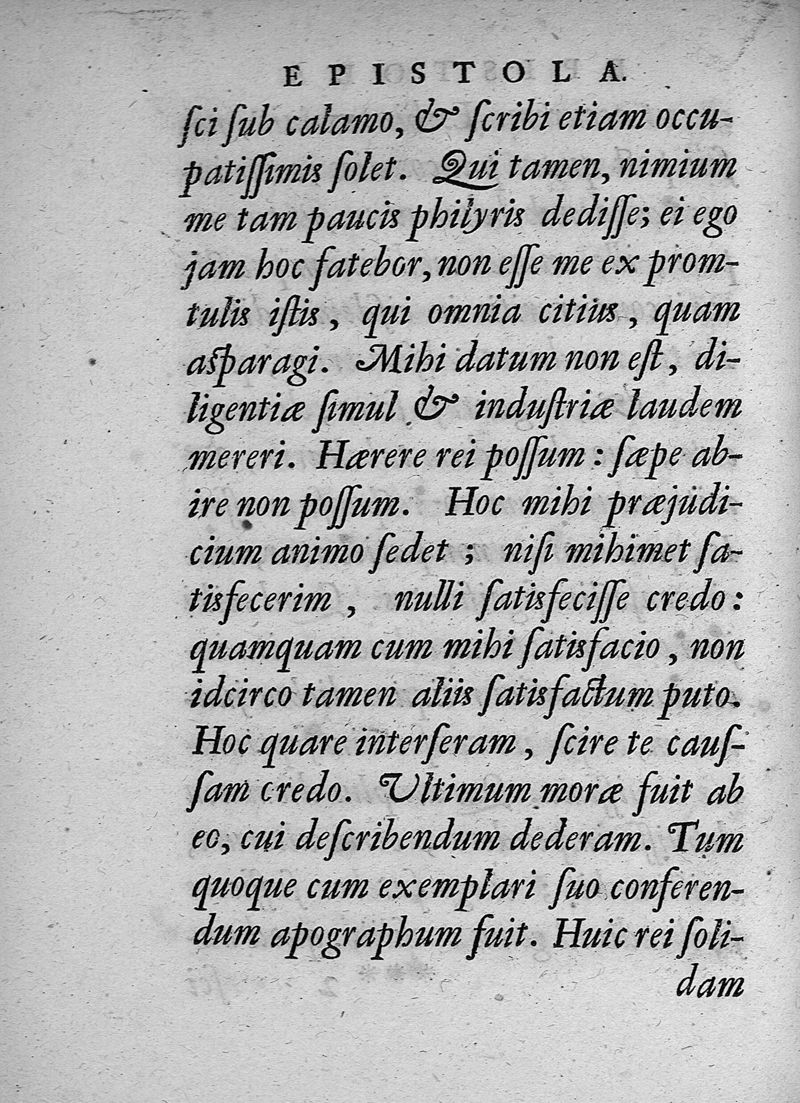 EPISTOLA.
ſci ſub calamo, & ſcribi etiam occu-
patiſſimis ſolet. Qui tamen, nimium
me tam paucis philyris dediſſe; ei ego
jam hoc fatebor, non eſſe me ex prom-
tulis iſtis, qui omnia citius, quam
aſparagi. Mihi datum non eſt, di-
ligentiæ ſimul & induſtriæ laudem
mereri. Hærere rei poſſum: ſæpe ab-
ire non poſſum. Hoc mihi præjudi-
cium animo ſedet; niſi mihimet ſa-
tisfecerim, nulli ſatisfeciſſe credo:
quamquam cum mihi ſatisfacio, non
idcirco tamen aliis ſatisfactum puto.
Hoc quare interſeram, ſcire te cauſ-
ſam credo. Ultimum moræ fuit ab
eo, cui deſcribendum dederam. Tum
quoque cum exemplari ſuo conferen-
dum apographum fuit. Huic rei ſoli-
dam